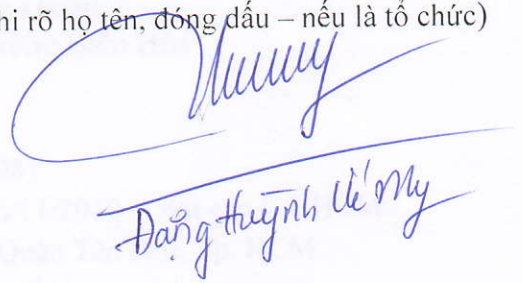 hi rõ họ tên, đóng dấu – nếu là tổ chức)
Đặng Huỳnh Ức My